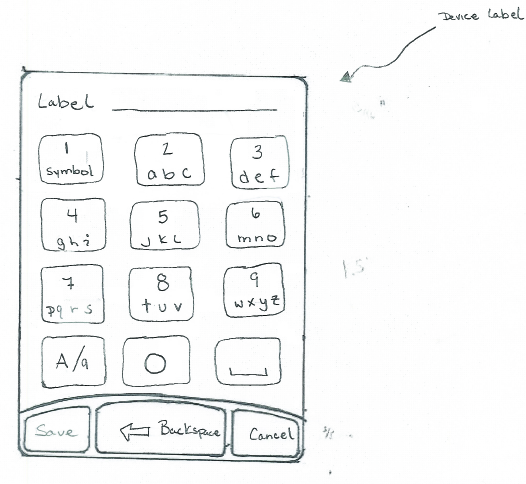 Device Label
Label
1 2 3
symbol abc def
4 5 6
ghi JKL mno
7 8 9
pqrs tuv wxyz
A/a 0
Save Backspace Cancel
1.5